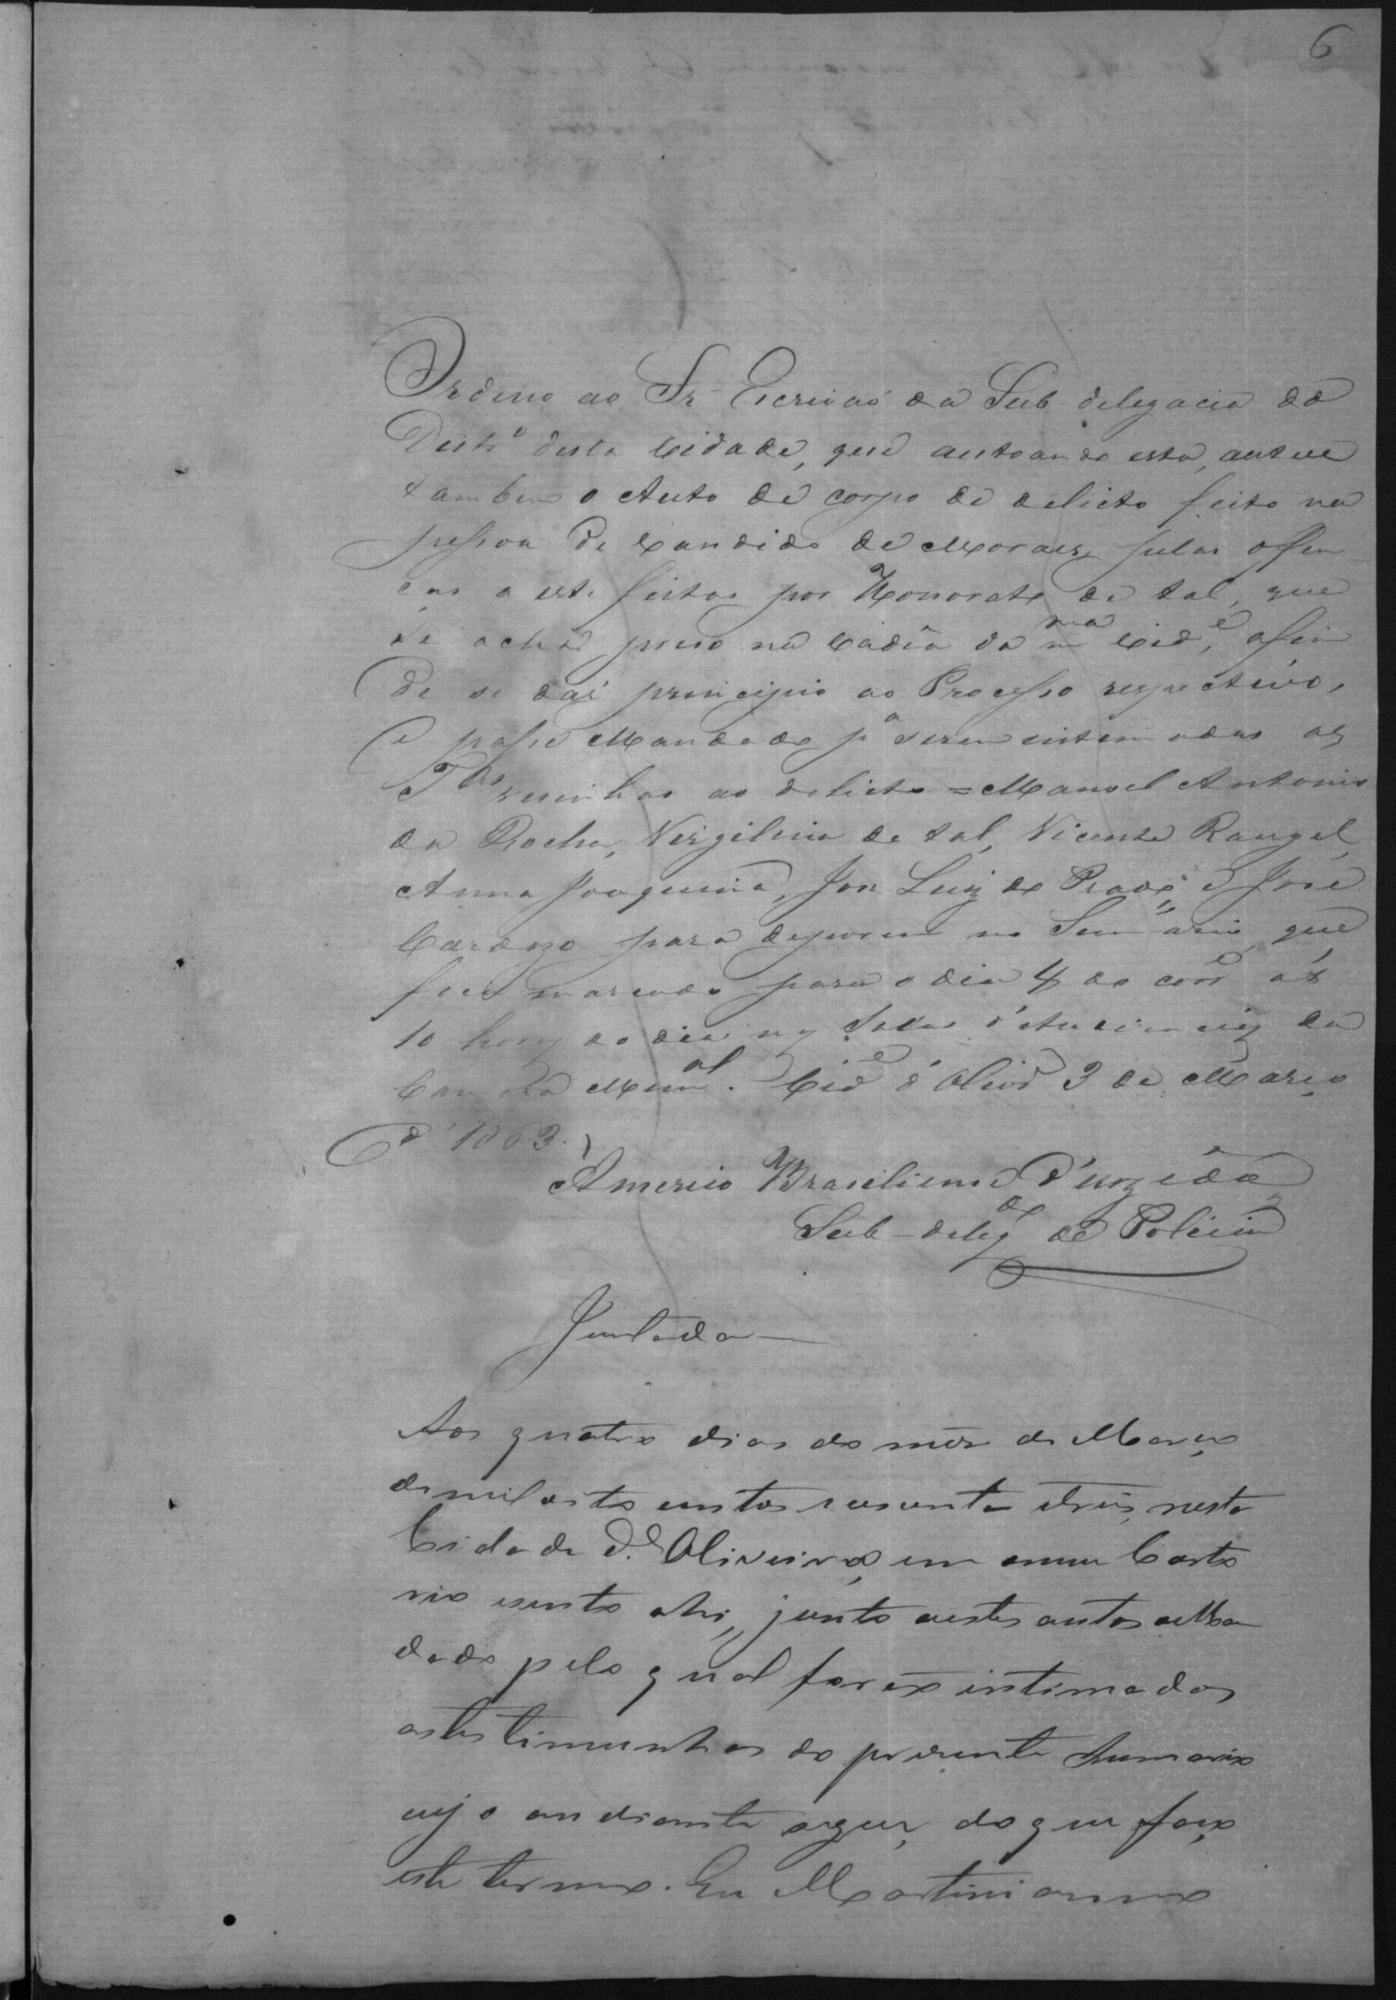 6
Ordeno ao Sr. Escrivaõ da Sub delegacia do
Distrº desta Cidade, que autoando esta, autue
tambem o Auto de corpo de delicto feito na
pessoa de Candido de Moraes, pelas ofen
ças a este feitas por Honorato de tal, que
se acha preso na Cadêa da mma Cidᵉ, afim
de se dar principio ao Processo respectivo,
e passe Mandado pª serem intimadas as
Tas ao delicto = Manoel Antonio
da Rocha, Virgilino de tal, Vicente Rangel,
Anna Joaquina, José Luiz do Prado, e José
Cardozo para deporem no Sumario, que
fica marcado para o dia 4 do corrᵉ ás
10 horas do dia nas Salas d'Audiencias da
Camara Munal. Cidᵉ d'Olivrª 3 de Março
d'1863.
Americo Brasiliano d'
Sub-delegdo de Policia
Juntada
Aos quatro dias do mes de Março
de mil oito centos secenta e tres, nesta
Cidade d'Oliveira, em o meu Carto
rio sento ahi, junto a estes autos o Man
dado pelo qual foraõ intimados
as testimunhas do presente Sumario
cujo an diante segue, do que faço
este termo. Eu Martiniano